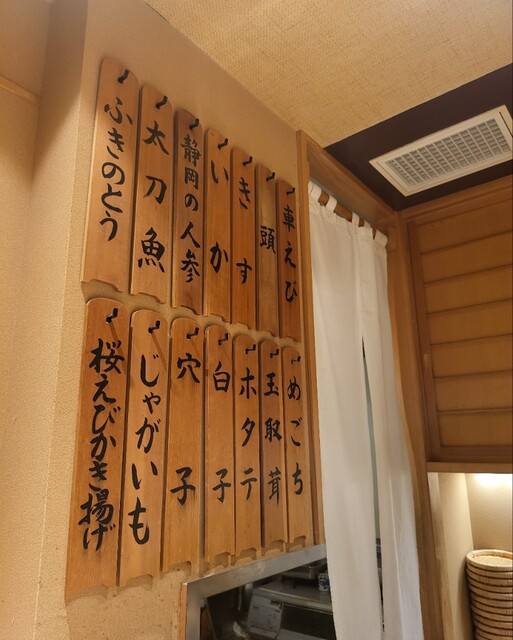 車えび
頭
きす
いか
静岡の人参
太刀魚
ふきのとう
めごち
玉取茸
ホタテ
白子
穴子
じゃがいも
桜えびかき揚げ